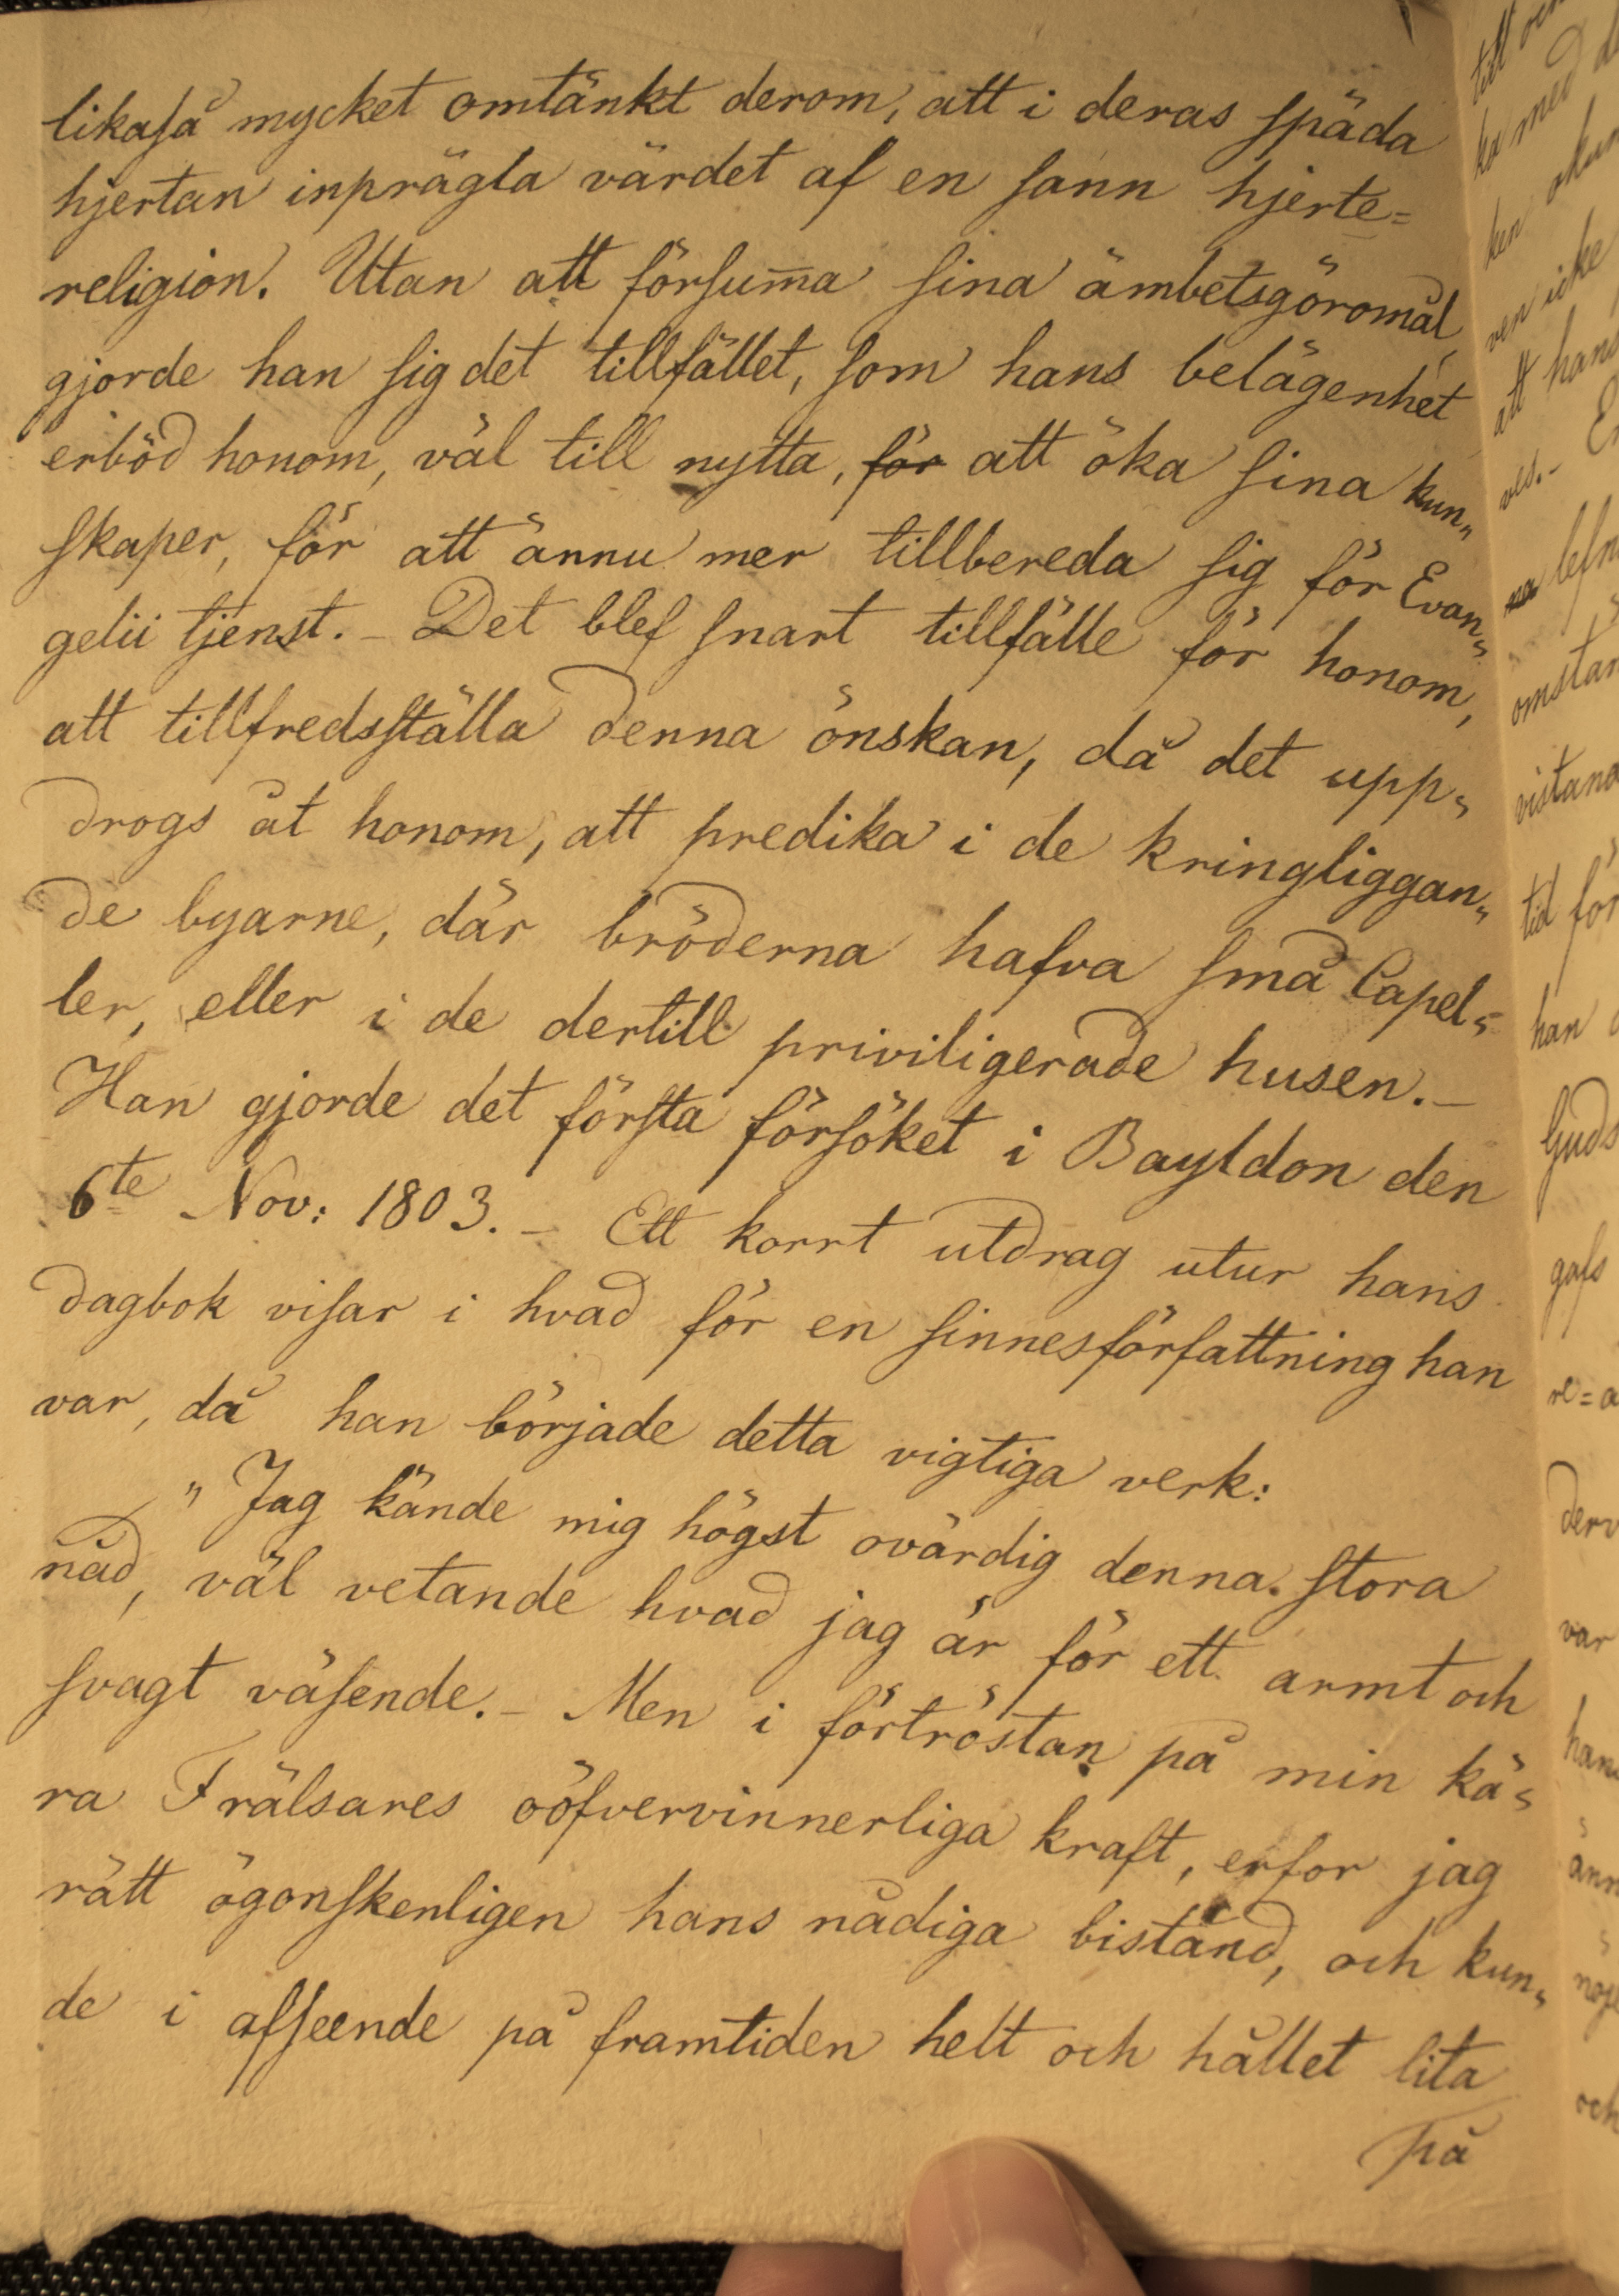 likaså mycket omtänkt derom, att i deras späda
hjertan inprägla värdet af en sann hjerte=
religion. Utan att försum̄a sina ämbetsgöromål
gjorde han sig det tillfället, som hans belägenhet
erböd honom, väl till nytta, för att öka sina kun„
skaper, för att ännu mer tillbereda sig för Evan„
gelii tjenst. – Det blef snart tillfälle för honom,
att tillfredsställa denna önskan, då det upp„
drogs åt honom, att predika i de kringliggan„
de byarne, där bröderna hafva små Capel„
ler, eller i de dertill priviligerade husen. –
Han gjorde det första försöket i Bayldon den
6te Nov: 1803. – Ett korrt utdrag utur hans
dagbok visar i hvad för en sinnesförfattning han
var, då han började detta vigtiga verk:
„ Jag kände mig högst ovärdig denna stora
nåd, väl vetande hvad jag är för ett armt och
svagt väsende. – Men i förtröstan på min kä„
ra Frälsares oöfvervinnerliga kraft, erfor jag
rätt ögonskenligen hans nådiga bistånd, och kun„
de i afseende på framtiden helt och hållet lita
på